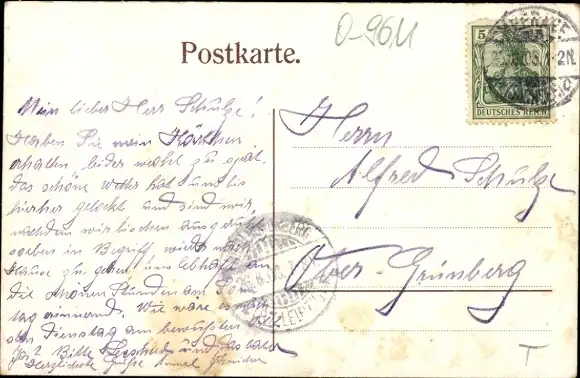 O-9611
Postkarte.
5
DEUTSCHES REICH
Mein lieber Herr Schulze!
Haben Sie mein Kärtchen
erhalten, leider wohl zu spät.
Das schöne Wetter hat uns bis
hierher gelockt und sind wir,
nachdem wir bischen ausgeruht
soeben im Begriff wieder nach
Hause zu gehen uns lebhaft an
die schönen Stunden am Sonn
tag erinnernd. Wie wäre es mit
dem Dienstag am bewussten
Bitte Bescheid und das bald
Herzlichste Grüße
Herrn
Alfred Schulze
Ober-Grünberg
LEIPZIG
T